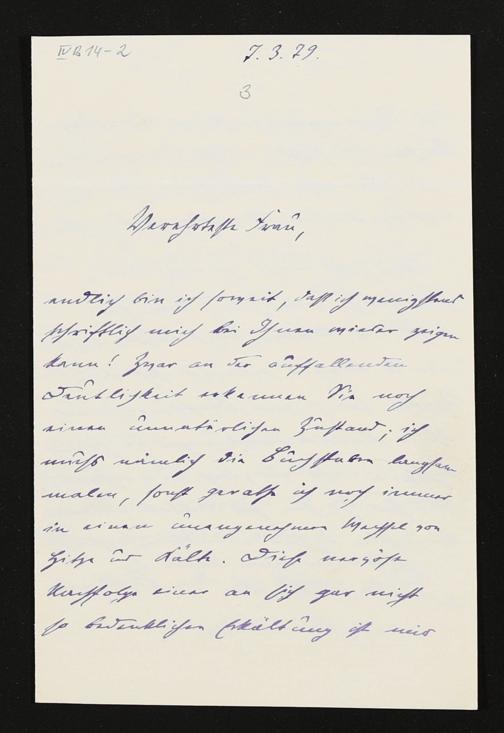 IV B 14-2
7. 3. 79.
3
Verehrteste Frau,
endlich bin ich soweit, daß ich wenigstens
schriftlich mich bei Ihnen wieder zeigen
kann! Zwar an der auffallenden
Deutlichkeit erkennen Sie noch
einen unnatürlichen Zustand; ich
muß nämlich die Buchstaben langsam
malen, sonst gerathe ich noch immer
in einen unangenehmen Wechsel von
Hitze und Kälte. Diese nervöse
Nachfolge einer an sich gar nicht
so bedenklichen Erkältung ist mir